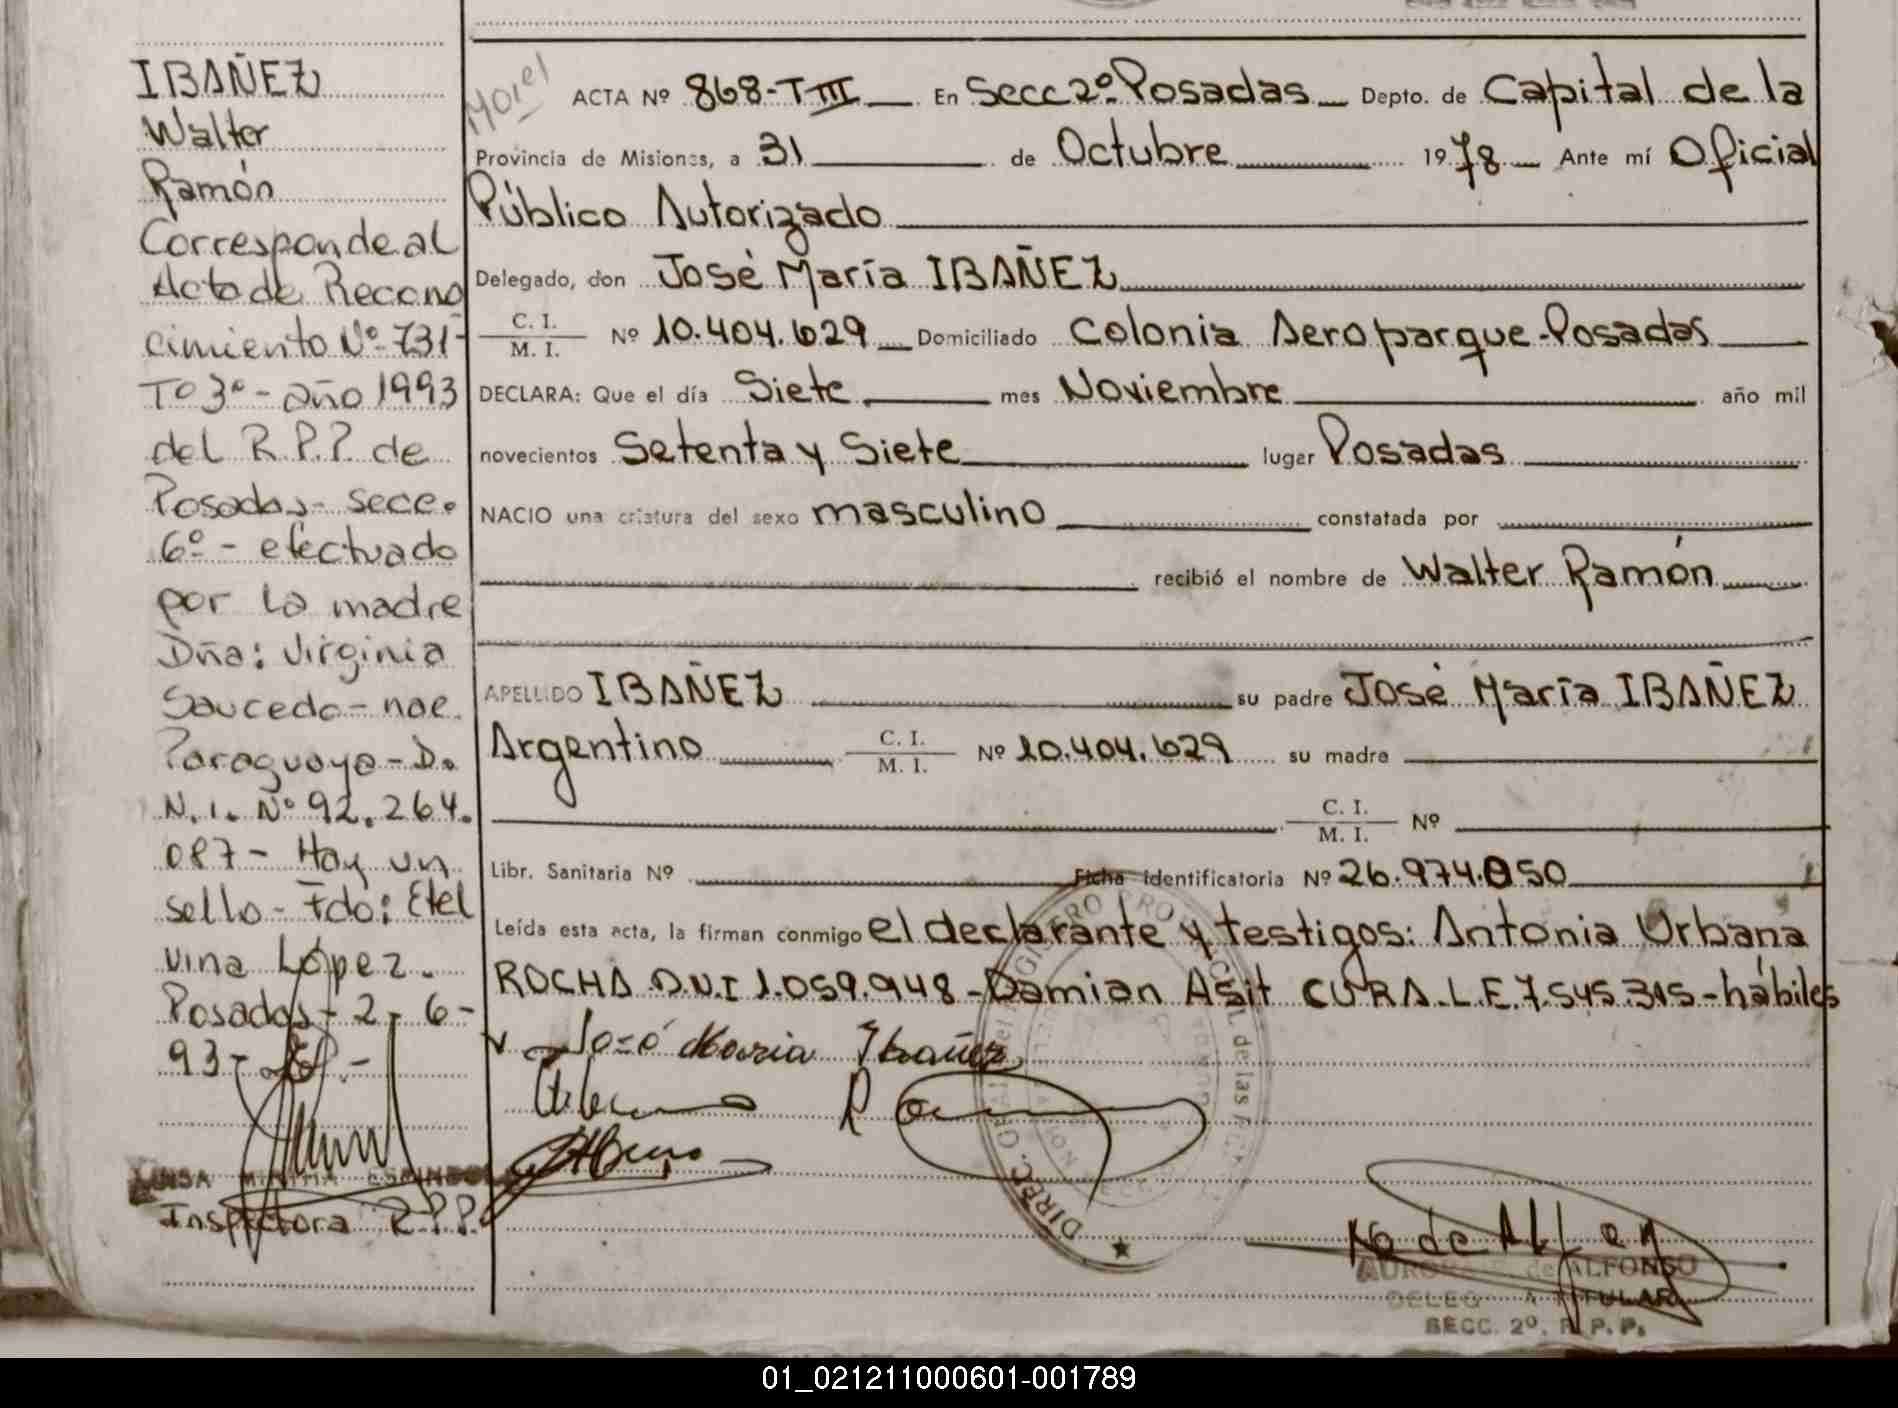 IBAÑEZ
Walter
Ramón
Corresponde al
Acta de Recono
cimiento Nº 731-
Tº 3º - año 1993
del R.P.P. de
Posadas - secc.
6º - efectuado
por la madre
Dña: Virginia
Saucedo - nac.
Paraguaya - D.
N.I. Nº 92.264.
087 - Hay un
sello - Fdo: Etel
vina López.
Posadas - 2 - 6 -
93 -
Inspectora R.P.P.
ACTA Nº 868-TIII En Secc 2º Posadas Depto. de Capital de la
Provincia de Misiones, a 31 de Octubre 1978 Ante mí Oficial
Público Autorizado
Delegado, don José María IBAÑEZ
C. I.
M. I. Nº 10.404.629 Domiciliado Colonia Aeroparque-Posadas
DECLARA: Que el día Siete mes Noviembre año mil
novecientos Setenta y Siete lugar Posadas
NACIO una criatura del sexo masculino constatada por
recibió el nombre de Walter Ramón
APELLIDO IBAÑEZ su padre José María IBAÑEZ
Argentino C. I.
M. I. Nº 10.404.629 su madre
C. I.
M. I. Nº
Libr. Sanitaria Nº Ficha identificatoria Nº 26.974.050
Leída esta acta, la firman conmigo el declarante y testigos: Antonia Urbana
ROCHA D.N.I 1.059.948 - Damian Asit CURA. L.E. 7.545.315 - hábiles
José Maria Ibañez
DIREC. GRAL del REGISTRO PROVINCIAL de las
de ALFONSO
TITULAR
SECC. 2º. R. P. P.
01_021211000601-001789